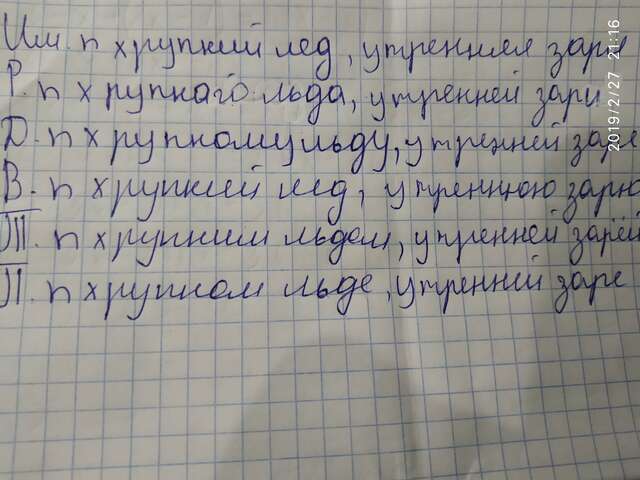 Им. п хрупкий лед, утренняя заря
Р. п хрупкого льда, утренней зари
Д. п хрупкому льду, утренней заре
В. п хрупкий лед, утреннюю зарю
Т. п хрупким льдом, утренней зарёй
П. п хрупком льде, утренней заре
2019/2/27 21:16